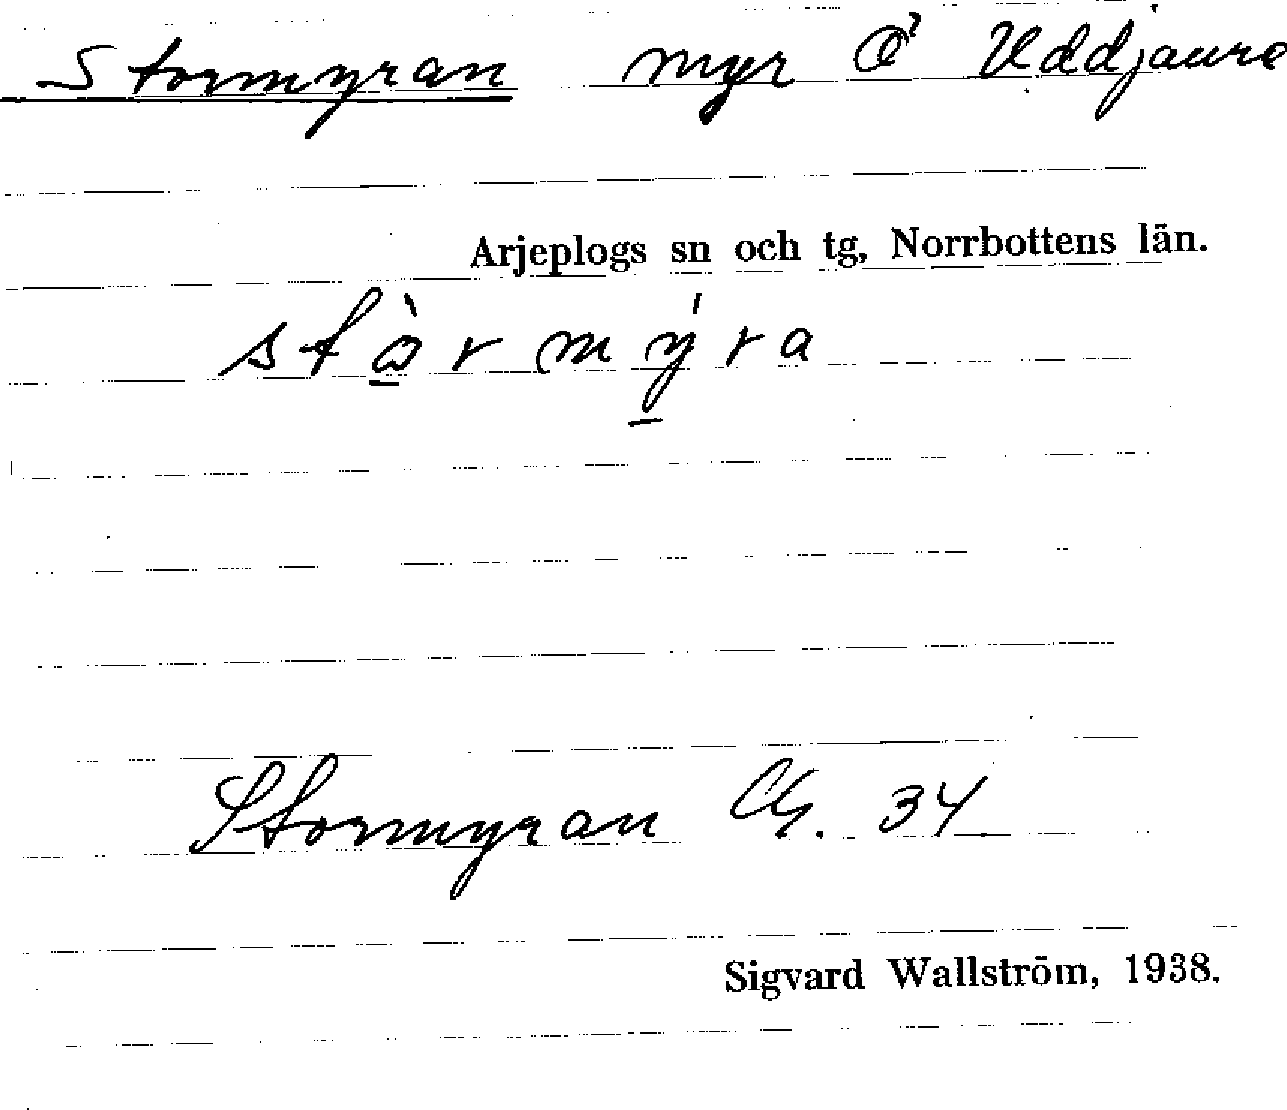 Stormyran myr Ö Uddjaure
Arjeplogs sn och tg, Norrbottens län.
Stormyran 34
Sigvard Wallström, 1938.